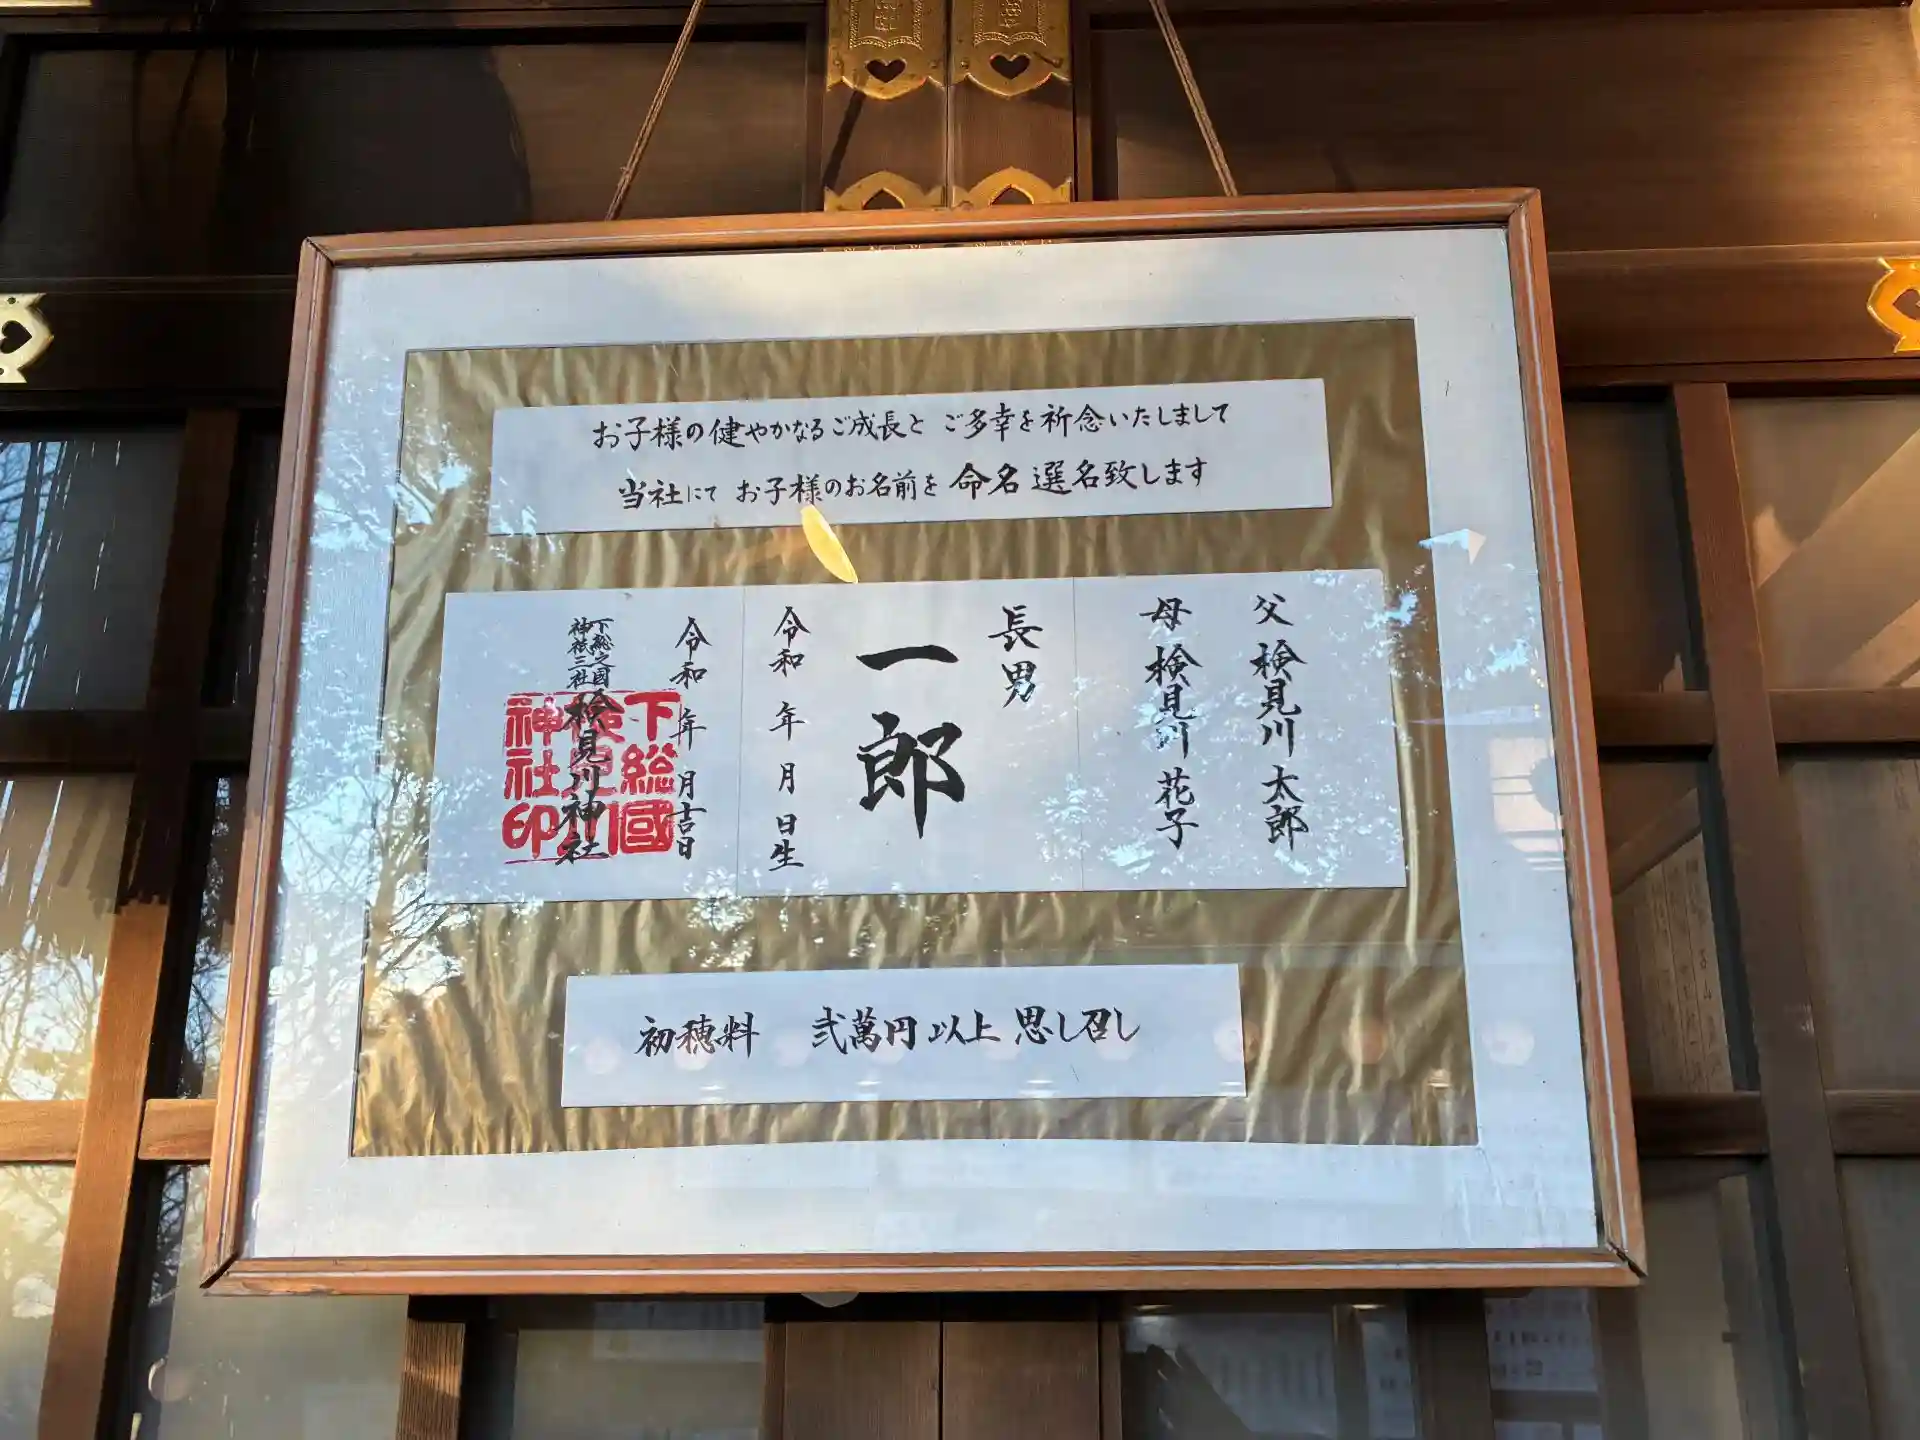 お子様の健やかなるご成長と ご多幸を祈念いたしまして
当社にて お子様のお名前を 命名 選名致します
父 検見川 太郎
母 検見川 花子
長男
一郎
令和 年 月 日生
令和 年 月吉日
下総之国
神祇三社
検見川神社
下総國
検見川
神社印
初穂料 弐萬円以上 思し召し